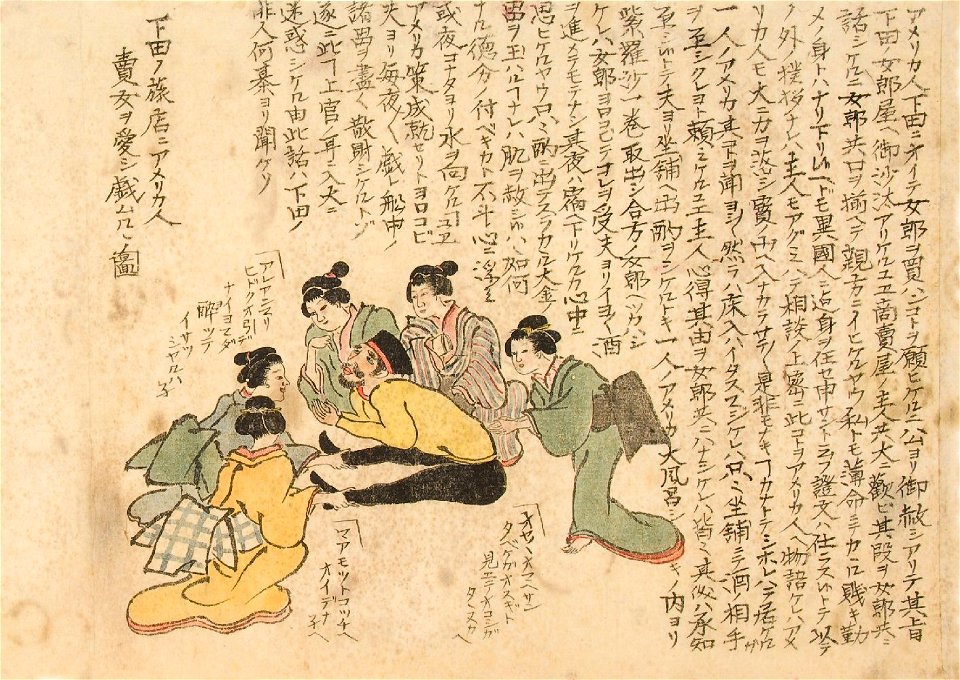 アメリカ人下田ニオイテ女郎ヲ買ハンコトヲ願ヒケルニ公ヨリ御赦シアリテ其旨
下田女郎屋ヘ御沙汰アリケルユヱ商賣屋ノ主人大ニ歡ビ其段ヲ女郎共ニ
話シケルニ女郎共口ヲ揃ヘテ親ユカニイヒケルヤウ私トモ薄命ニテカヽル賤キ勤
メノ身トハナリ下リ候ヘドモ異國人ニ此身ヲ任セ申サントヱフ證文ハ仕ラズ候トテ以テ
ノ外ノ挨拶ナレハ主人モアグミハテ相談ノ上密ニ此コトヲアメリカ人ヘ物語ケレハアメ
リカ人モ大ニカヲ落シ寶ノ山ヘ入ナカラサラハ是非モナキ
一人ノアメリカ其コトヲ聞ヨシ然ラハ床入ハイタスマシケレハ只坐鋪ニテ酒ノ相手
ヲ至シクレヨト頼ミケルユエ主人心得其由ヲ女郎共ニハナシケレハ皆々其如ハ承知
至シ候トテ夫ヨリ坐鋪ヘ出酌ヲシケルトキ一人ノアメリカ大風呂シキノ内ヨリ
紫羅沙一巻取出シ合方ノ女郎ヘツカハシ
ケレハ女郎ヨロコビテコレヲ受夫ヨリイヨ〱酒
ヲ進メテモテナシ其夜ハ宿ヘ下リケルカ心中ニ
思ヒケルヤウ只酌ニ出テスラカヽル大金
ノ品ヲ玉ハルコナレハ肌ヲ赦シ候ハ如何
ナル德分ノ付ベキカト不斗心ニ浮ミ
或夜コナタヨリ水ヲ向ケルユヱ
アメリカ策成就セリトヨロコビ
夫ヨリ毎夜〱戯レ船中ノ
諸品ヲ盡ク散財シケルトゾ
遂ニ此コ上官ノ耳ニ入大ニ
迷惑シケル由此話ハ下田ノ
非人何暴ヨリ聞ケリ
下田ノ旅店ニアメリカ人
賣女ヲ愛シ戯ルヽ圖
アレサアンマリ
ヒドクオ引デ
ナイヨマダ
酔ツテ
イサツ
シヤルハ
子
オセヽオマヘサン
タベケガオスギト
見エテオヨシガ
タヽヌカヘ
マアモツトコツチヘ
オイデナ
子ヘ